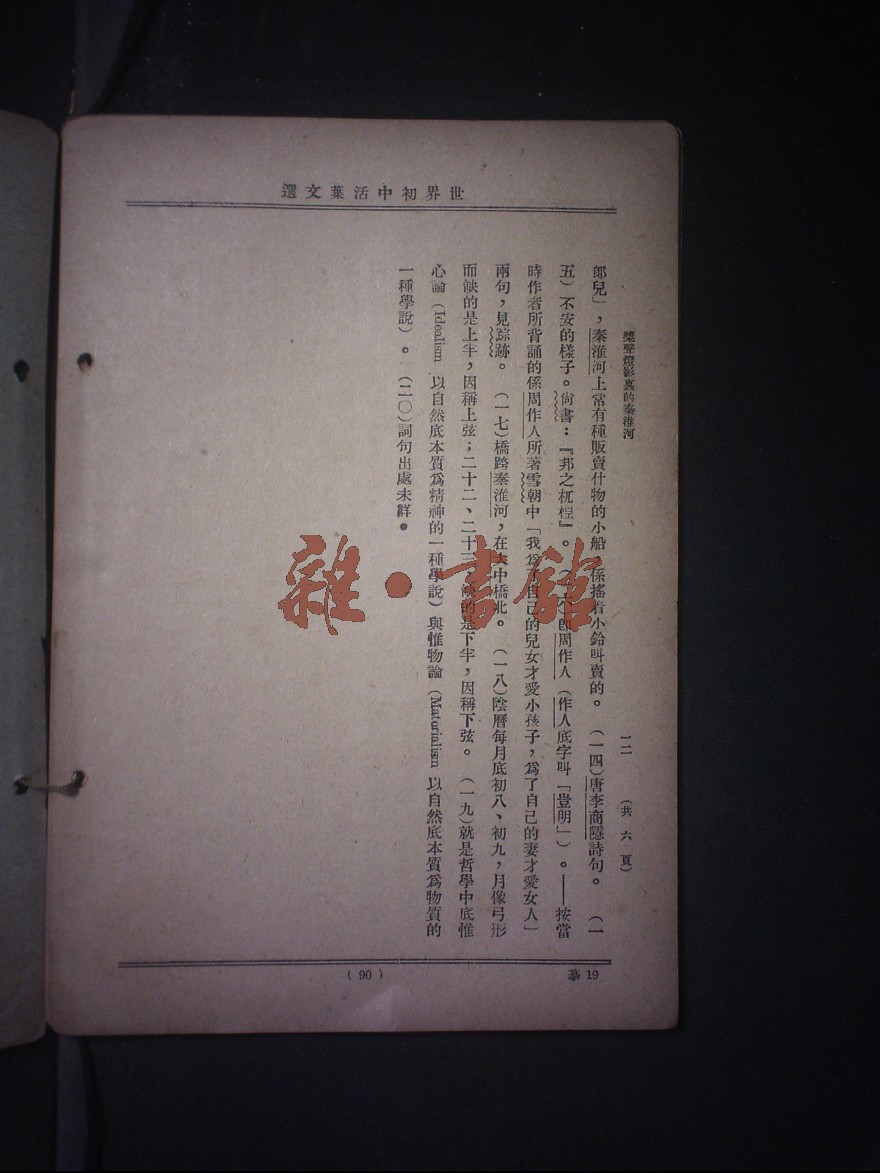 世界初中活葉文選
槳聲燈影裏的秦淮河
一二
（共六頁）
郎兒」，秦淮河上常有種販賣什物的小船，係搖着小鈴叫賣的。（一四）唐李商隱詩句。（一
五）不安的樣子。尙書：『邦之杌桯』。（一六）卽周作人（作人底字叫「豈明」）。——按當
時作者所背誦的係周作人所著雪朝中「我爲了自己的兒女才愛小孩子，爲了自己的妻才愛女人」
兩句，見踪跡。（一七）橋跨秦淮河，在大中橋北。（一八）陰曆每月底初八、初九，月像弓形
而缺的是上半，因稱上弦；二十二、二十三，缺的是下半，因稱下弦。（一九）就是哲學中底惟
心論（Idealism 以自然底本質爲精神的一種學說）與惟物論（Materialism 以自然底本質爲物質的
一種學說）。（二〇）詞句出處未詳。
（90）
19
雜·書館